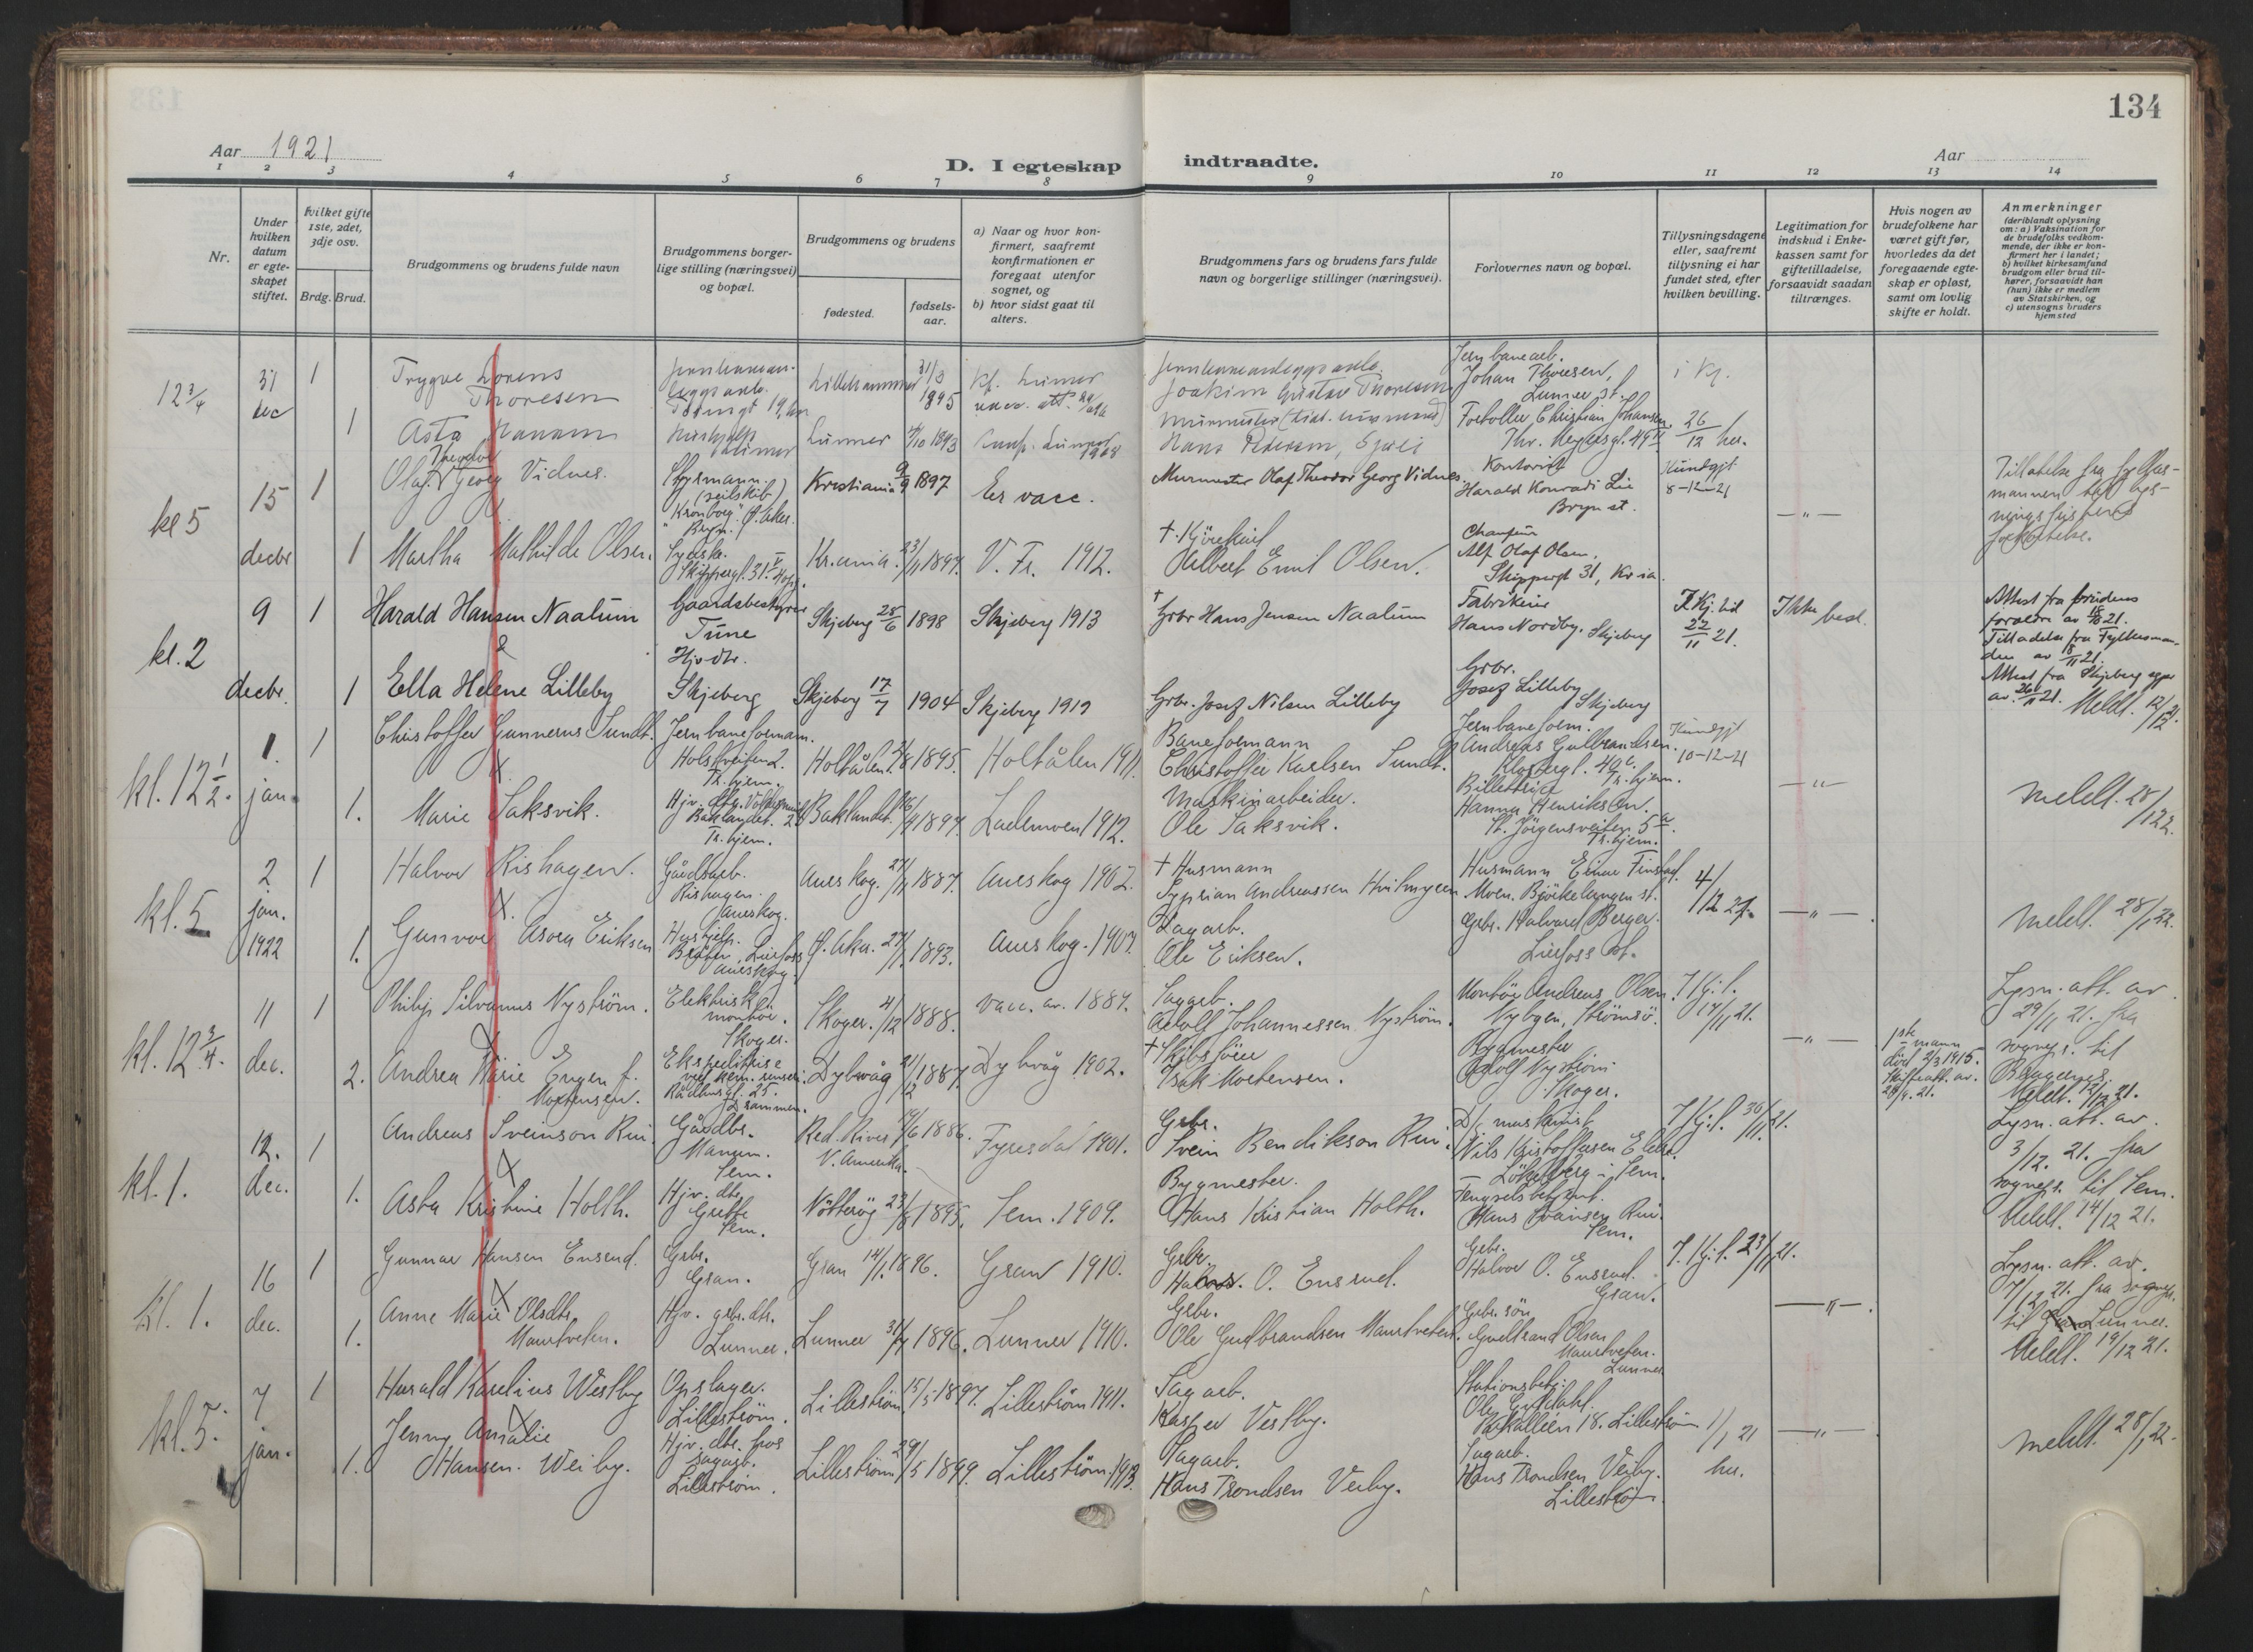 134
Aar 1921
D. I egteskap indtraadte.
Aar
1 2 3 4 5 6 7 8 9 10 11 12 13 14
Nr.
Under hvilken datum er egteskapet stiftet.
Hvilket gifte 1ste, 2det, 3dje osv.
Brdg. Brud.
Brudgommens og brudens fulde navn
Brudgommens borgerlige stilling (næringsvei) og bopæl.
Brudgommens og brudens
fødested.
fødselsaar.
a) Naar og hvor konfirmert, saafremt konfirmationen er foregaat utenfor sognet, og
b) hvor sidst gaat til alters.
Brudgommens fars og brudens fars fulde navn og borgerlige stillinger (næringsvei).
Forlovernes navn og bopæl.
Tillysningsdagene eller, saafremt tillysning ei har fundet sted, efter hvilken bevilling.
Legitimation for indskud i Enkekassen samt for giftetilladelse, forsaavidt saadan tiltrænges.
Hvis nogen av brudefolkene har været gift før, hvorledes da det foregaaende egteskap er opløst, samt om lovlig skifte er holdt.
Anmerkninger
(deriblandt oplysning om: a) Vaksination for de brudefolks vedkommende, der ikke er konfirmert her i landet;
b) hvilket kirkesamfund brudgom eller brud tilhører, forsaavidt han (hun) ikke er medlem av Statskirken, og
c) utensogns bruders hjemsted
12 3/4
31 dec
1
Trygve Lorens Thoresen
Lillehammer 31/3 1895
Joakim Gustav Thoresen
Jernbanearb.
Johan Thoresen,
Lunner st.
1
Asta
Lunner
1893
Hans Pedersen,
Christian Johansen
Thr. Meyersgt. 49
26/12 her.
kl 5
15 decbr
1
Olaf Georg Vidnes.
Styrmann.
(seilskib)
"Kronborg". Ø. Aker.
Bryn.
Kristiania 9/9 1897
Er vacc.
Murmester Olaf Theodor Georg Vidnes.
Kontorist
Harald Konradi Lie
Bryn st.
Kundgjt
8-12-21
— " —
Tillatelse fra fylkesmannen
1
Martha Mathilde Olsen.
Syersk.
Skippergt. 31
Kr.ania. 23/11 1897.
V. Fr. 1912.
† Kjørekarl
Albert Emil Olsen.
Chauffeur
Alf Olaf Olsen.
Skippergt 31, Kr ia.
kl. 2
9 decbr.
1
Harald Hansen Naalum
&
Gaardsbestyrer
Tune
Skjeberg 28/6 1898
Skjeberg 1913
† Grbr Hans Jensen Naalum
Fabrikeier
Hans Nordby. Skjeberg
22/11 21.
Ikke bed.
Attest fra brudens
foreldre av 18/8 21.
Tilladelse fra Fylkesmanden av 8/11 21.
Attest fra Skjeberg
av 26/11 21. Meldt. 12/12 21.
1
Ella Helene Lilleby
Hjv. dtr.
Skjeberg
Skjeberg 17/7 1904
Skjeberg 1919
Grbr. Josef Nilsen Lilleby
Grbr.
Josef Lilleby
Skjeberg
kl. 12 1/2.
1. jan.
1
Christoffer Gunnerus Sundt.
Jernbaneformann.
Holstveiten 2.
Tr.hjem.
Holtålen 1895.
Holtålen 1911
Baneformann
Christoffer Karlsen Sundt.
Jernbaneform.
Andreas Gulbrandsen.
Klostergt. 49
Tr.hjem.
Kundgjt
10-12-21
— " —
meldt. 28/1 22.
1.
Marie Saksvik.
Baklandet.
Tr. hjem.
Baklandet. 1897.
Lademoen 1912.
Maskinarbeider.
Ole Saksvik.
Billettrise
Hanna Henriksen.
St. Jörgensveiten 5 a.
Tr.hjem.
kl. 5
2 jan. 1922
1
Halvor Rishagen.
Gårdsarb.
Rishagen
Aurskog.
Aurskog. 27/11 1887.
Aurskog 1902.
† Husmann
Husmann Einar Finstad.
Moen. Bjørkelangen st.
4/12 21.
— " —.
meldt. 28/1 22.
1.
Gunvor Asora Eriksen
Hushjelp.
Aurskog.
Ø. Aker. 27/1. 1893.
Aurskog. 1907.
Sagarb.
Ole Eriksen.
Grbr. Halvard Berger.
Lierfoss st.
kl. 12 3/4.
11 dec.
1
Philip Silvanus Nyström.
Elektrisk montör.
Skoger.
Skoger. 4/12 1888.
vacc. av. 1889.
Sagarb.
Adolf Johannessen Nyström.
Montör Andreas Olsen.
Nybyen, Strömsö.
14/11 21.
— " —
1ste mann död 2/3 1915.
Skifteatt. av.
Lysn. att. av
29/11 21. fra
sognepr. til
Bragernes.
Meldt. 12/12 21.
2.
Andrea Marie Engen f. Mortensen.
Ekspeditrise
Rådhusgt. 25.
Dybvåg 21/12 1887.
Dybvåg 1902.
† Skibsförer
Isak Mortensen.
Bygmester
Adolf Nyström
Skoger.
kl. 1.
12. dec.
1
Andreas Sveinson Rui.
Gårdbr.
Manum.
Sem.
Red. River
N. Amerika.
1886.
Fyresdal 1901.
Grbr.
Svein Bendikson Rui.
Nils Kristoffersen
i Sem.
30/11 21.
Lysn. att. av.
3/12. 21. fra
sognepr. til Sem.
Meldt. 14/12 21.
1.
Asta Kristine Holth.
Hjv. dtr.
Grette
Sem.
Nötteröy 23/8 1895.
Sem. 1909.
Bygmester.
Hans Kristian Holth.
Fengselsbetjent.
Hans Svainsen Rui.
Sem.
kl. 1.
16 dec.
1
Gunnar Hansen Ensrud.
Grbr.
Gran.
Gran 14/1. 1896.
Gran 1910.
Grbr.
O. Ensrud.
Grbr.
Halvor O. Ensrud.
Gran.
23/11 21.
— " —.
Lysn. att. av.
7/12 21. fra sognepr.
til Lunner.
Meldt. 19/12 21.
1.
Anne Marie Olsdtr. Maurtveten.
Hjv. grbr.dtr.
Lunner.
Lunner 31/7 1896.
Lunner 1910.
Grbr.
Ole Gudbrandsen Maurtveten.
Grbr. sön
Gudbrand Olsen
Maurtveten.
Lunner
kl. 5.
7 jan.
1
Harald Karelius Westby
Opslager.
Lilleström.
Lilleström. 15/5 1897.
Lilleström 1911.
Sagarb.
Kasper Vestby.
Stationsbetj.
Parkalleen 18. Lilleström
1/1 21
her.
— " —.
meldt. 28/1 22.
1.
Jenny Amalie Hansen. Weiby.
Hjv. dtr. hos
sagarb.
Lilleström.
Lilleström 29/5 1899.
Lilleström. 1913.
Sagarb.
Hans Trondsen Veiby.
Sagarb.
Hans Trondsen Veiby.
Lilleström.